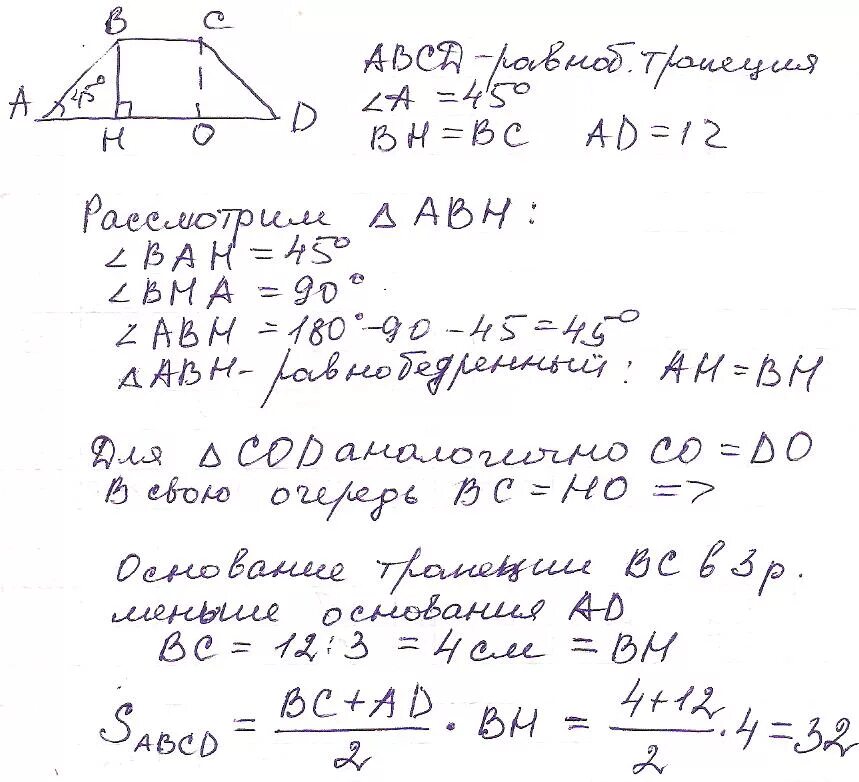 B C
A 45° H O D
ABCD - равноб. трапеция
∠A = 45°
BH = BC AD = 12
Рассмотрим △ ABH :
∠ BAH = 45°
∠ BHA = 90°
∠ ABH = 180° - 90 - 45 = 45°
△ ABH - равнобедренный : AH = BH
Для △ COD аналогично CO = DO
В свою очередь BC = HO =>
Основание трапеции BC в 3 р.
меньше основания AD
BC = 12 : 3 = 4 см = BH
S_ABCD = (BC + AD)/2 · BH = (4 + 12)/2 · 4 = 32